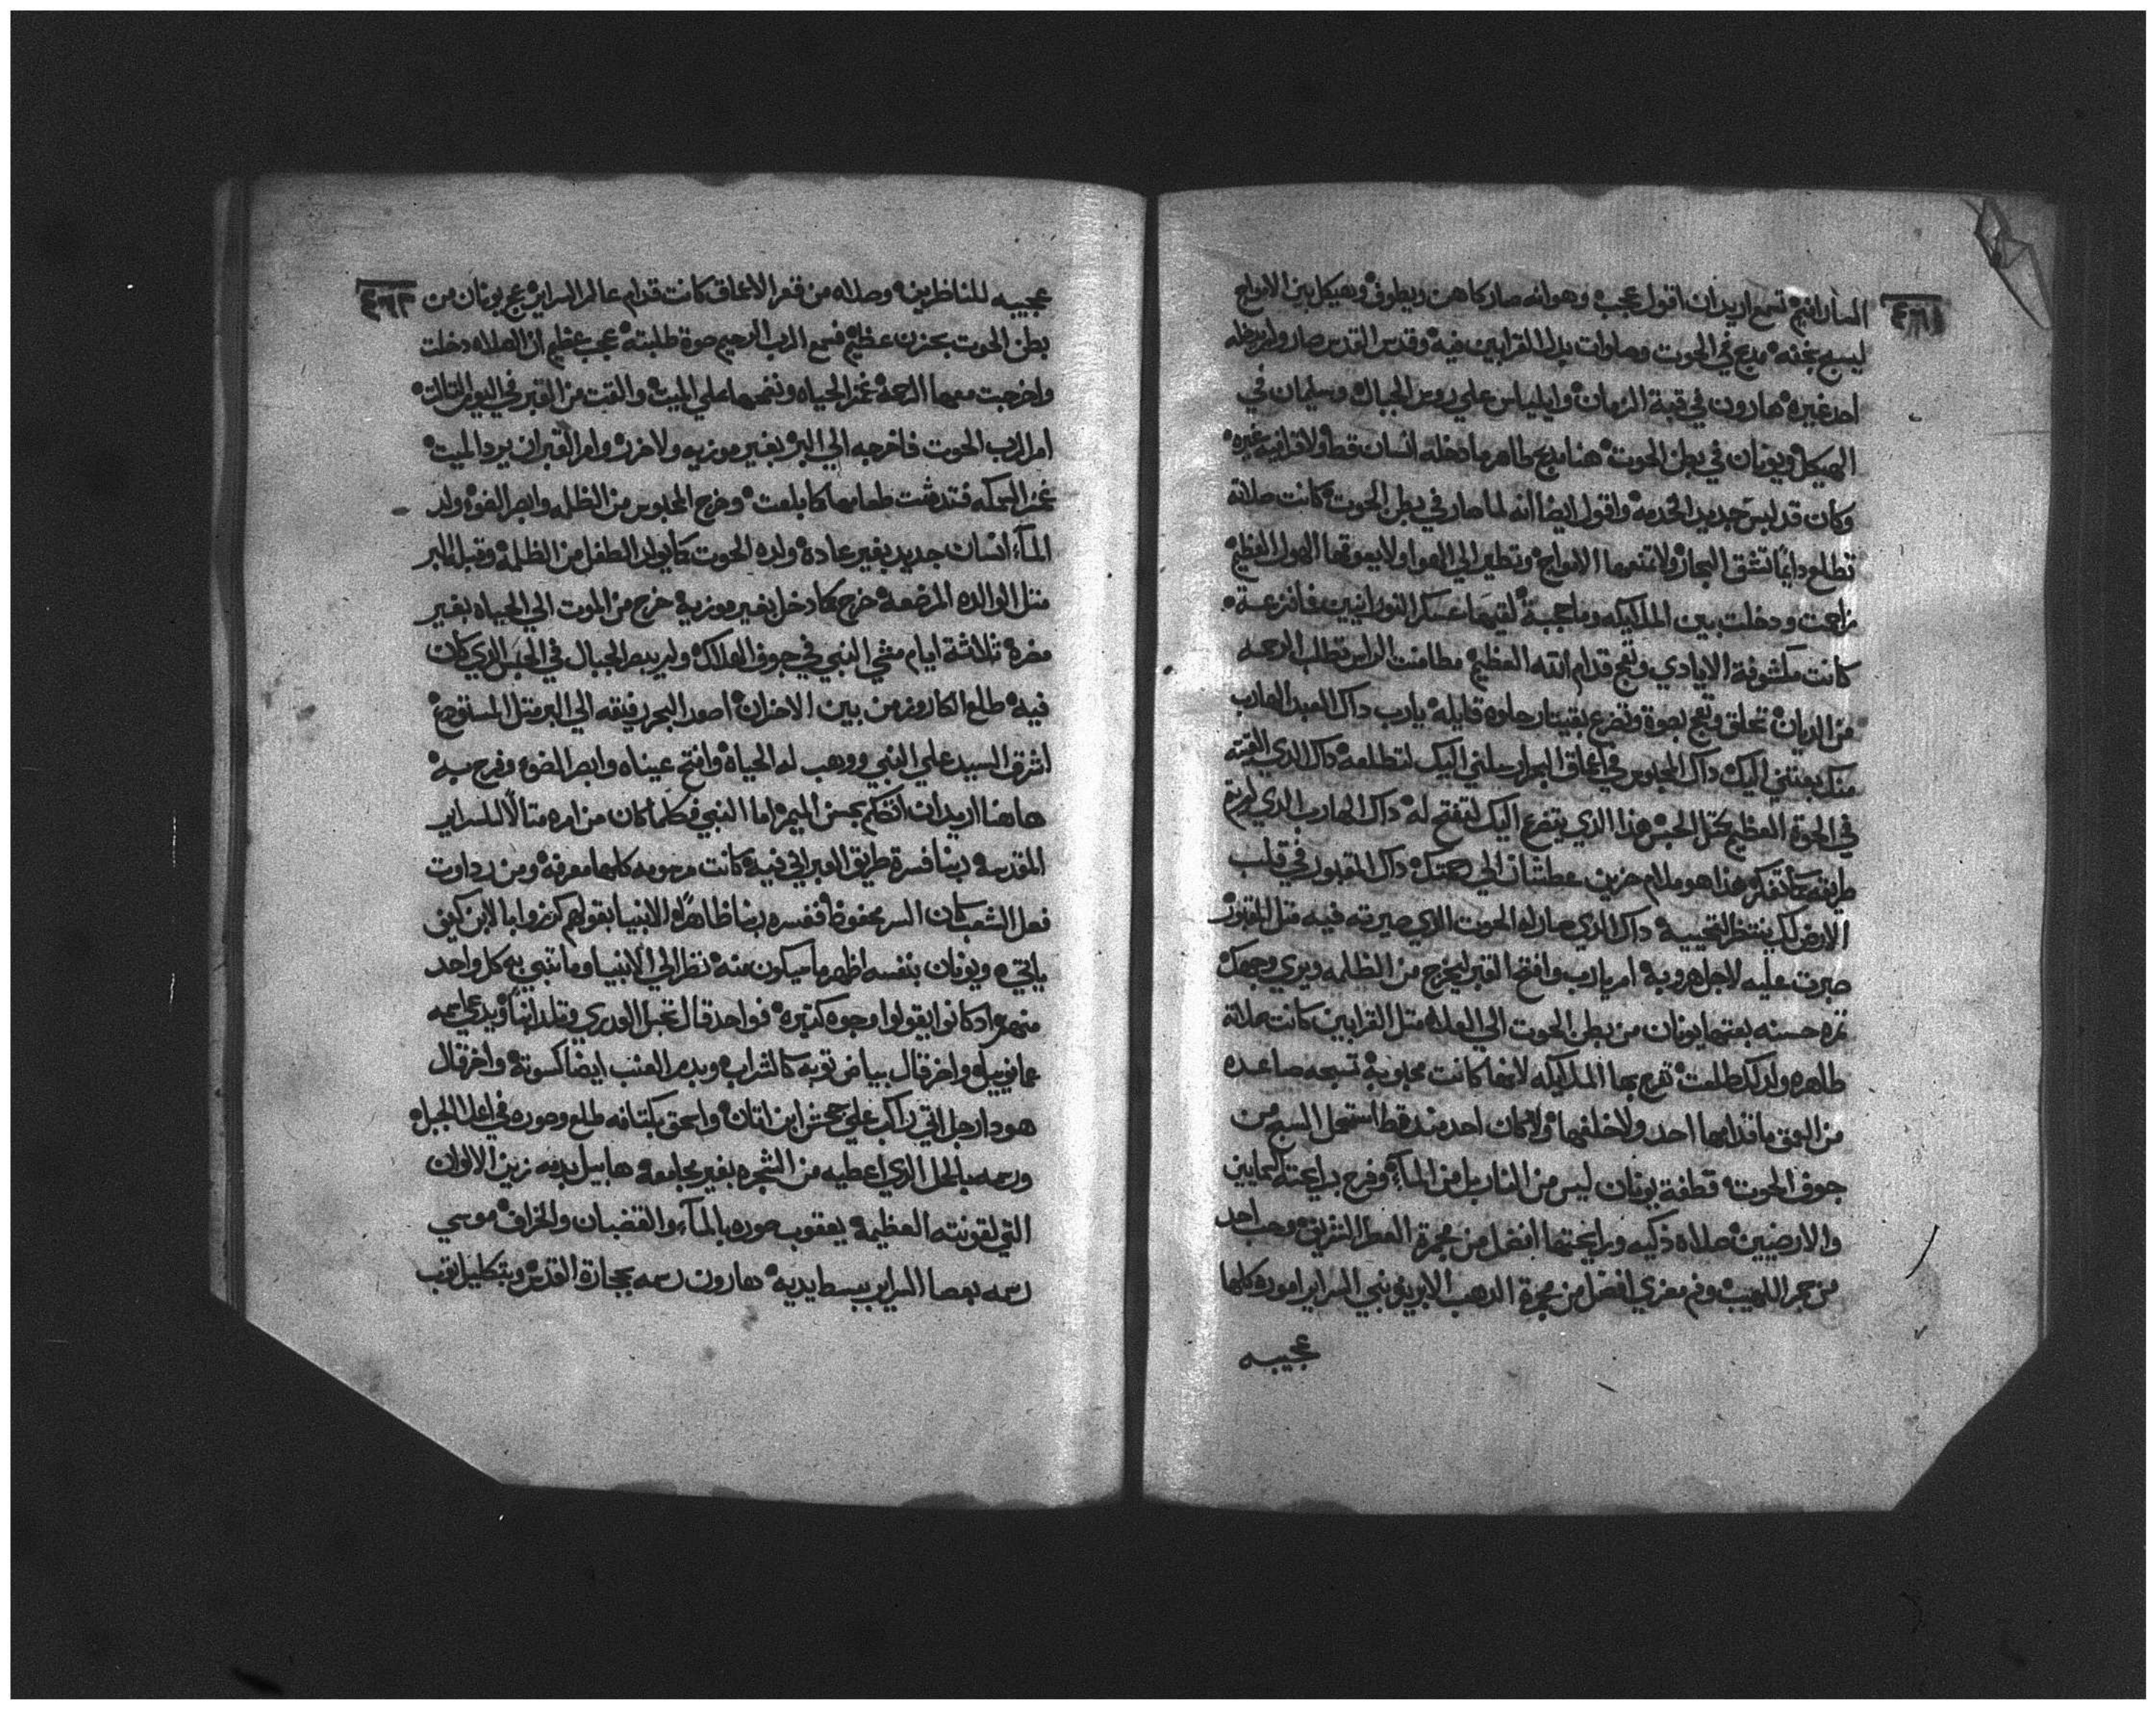 ٤٦١
السارافيم تسمع اريد ان اقول عجب وهو انه صار كاهن ويطوف وهيكل بين الامواج
ليسبح بخفه مدبح في الحوت وصلوات بدل القرابين فيه وقدس القدس صار ولم يدخله
احد غيره هارون في قبة الزمان وايلياس علي روس الجبال وسليمان في
الهيكل ويونان في بطن الحوت هنا مدبح طاهر ما دخله انسان قط ولا قرابيه غيره
وكان قد لبس جديد الخدمه واقول ايضا انه لما صار في بطن الحوت كانت صلاته
تطلع دايما تشق البحار ولا تمنعها الامواج وتطير الي الهوا ولا يعوقها الهول العظيم
زاحمت ودخلت بين الملايكه وما حجبة لقيها عسكر النورانيين فافزعة
كانت مكشوفة الايادي وتعج قدام الله العظيم مطامنت الراس تطلب الرحمه
من الديان تحلق وتعج بصوة وتضرع بقيتار حلوه قايله يارب داك العبد الهارب
منك بعتني اليك داك المحبوس في اعماق البحار ارسلني اليك لتطلعه داك الدي القيته
في الحوة العظيم كمتل الحبس هدا الدي يتضرع اليك لتفتح له داك الهارب الدي لم
طريقه هدا هو ملام حزين عطشان الي داك المقبور في قلب
الارض لك ينتظر لتحييه داك الدي صار له الحوت الدي صيرته فيه متل المقبور
صبرت عليه لاجل هروبه امر يارب وافتح القبر ليخرج من الظلمه ويري وجهك
تمره حسنه بعتها يونان من بطن الحوت الي العلاه متل القرابين كانت صلاته
طاهره ولدلك طلعت تفرح بها الملايكه لانها كانت محبوبه تسبحه صاعده
من العمق ما قدامها احد ولا خلفها ولا كان احد مند قط استعمل السبح من
جوف الحوت قطفة يونان ليس من النار بل من الماء وفرح برايحته السمايين
والارضيين صلاه دكيه ورايحتها افضل من مجمرة العطر التزين وحب احد
من جمر اللهيب وفم مغزي افضل من مجمرة الدهب الابريز نبي السراير اموره كلها
عجيبه
٤٦٢
عجيبه للناظرين وصلاه من قعر الاعماق كانت قدام عالم السراير عج يونان من
بطن الحوت بحزن عظيم فسمع الرب الرحيم صوة طلبته عجب عظيم ان الصلاه دخلت
واخرجت معها الرحمه عنز الحياه ونفسها علي الميت والقت من القبر في اليوم التالت
امر الرب الحوت فاخرجه الي البر بغير موزيه ولا ضرر وامر القبر ان يرد الميت
غمز السمكه فتدشت طعامها كما بلعت وخرج المحبوس من الظلمه وابصر الضوء ولد
الماء انسان جديد بغير عادة ولده الحوت كما يولد الطفل من الظلمه وقبله البر
متل الوالده المرضعه خرج كما دخل بغير موزيه خرج من الموت الي الحياه بغير
مضرة تلاتة ايام مشي النبي في جوف الهلاك ولم يبصر الجبال في الحبس الدي كان
فيه طلع الكاروز من بين الاحزان اصعد البحر رفيقه الي البر متل المستودع
اشرق السيد علي النبي ووهب له الحياه وافتح عيناه وابصر الضوء وفرح به
هاهنا اريد ان اتكلم بحسن الميمر اما النبي فكلما كان من امره متالا للسراير
المقدسه ربنا فسرة طريق العبراني فيه كانت مرسومه كلها معرفه ومن رداوت
فعل الشعب كان السر محفوظ ففسره ربنا ظاهرا الانبيا بقولهم كرزوا بالابن كيف
ياتي ويونان بنفسه اظهر ما ميكون منه نظر الي الانبيا وما تنبي به كل واحد
منهم اد كانوا يقولوا وجوه كتيره فواحد قال تحبل العدري وتلد ابنا ويدعي اسمه
عمانوييل واخر قال بياض توبه كالشراب وبدم العنب ايضا كسوته واخر قال
هودا رجل اتي راكب علي جحش ابن اتان واسحق بكتافه طلع وصوره في اعلا الجبل
ورسمه بالحمل الدي اعطيه من الشجره بغير مجامعه هابيل بدمه زين الالوان
التي لقونته العظيمه يعقوب صوره بالماء والقضبان والخراف موسي
رسمه بعصا السراير ببسط يديه هارون رسمه بحجارة القدس وبتكليل